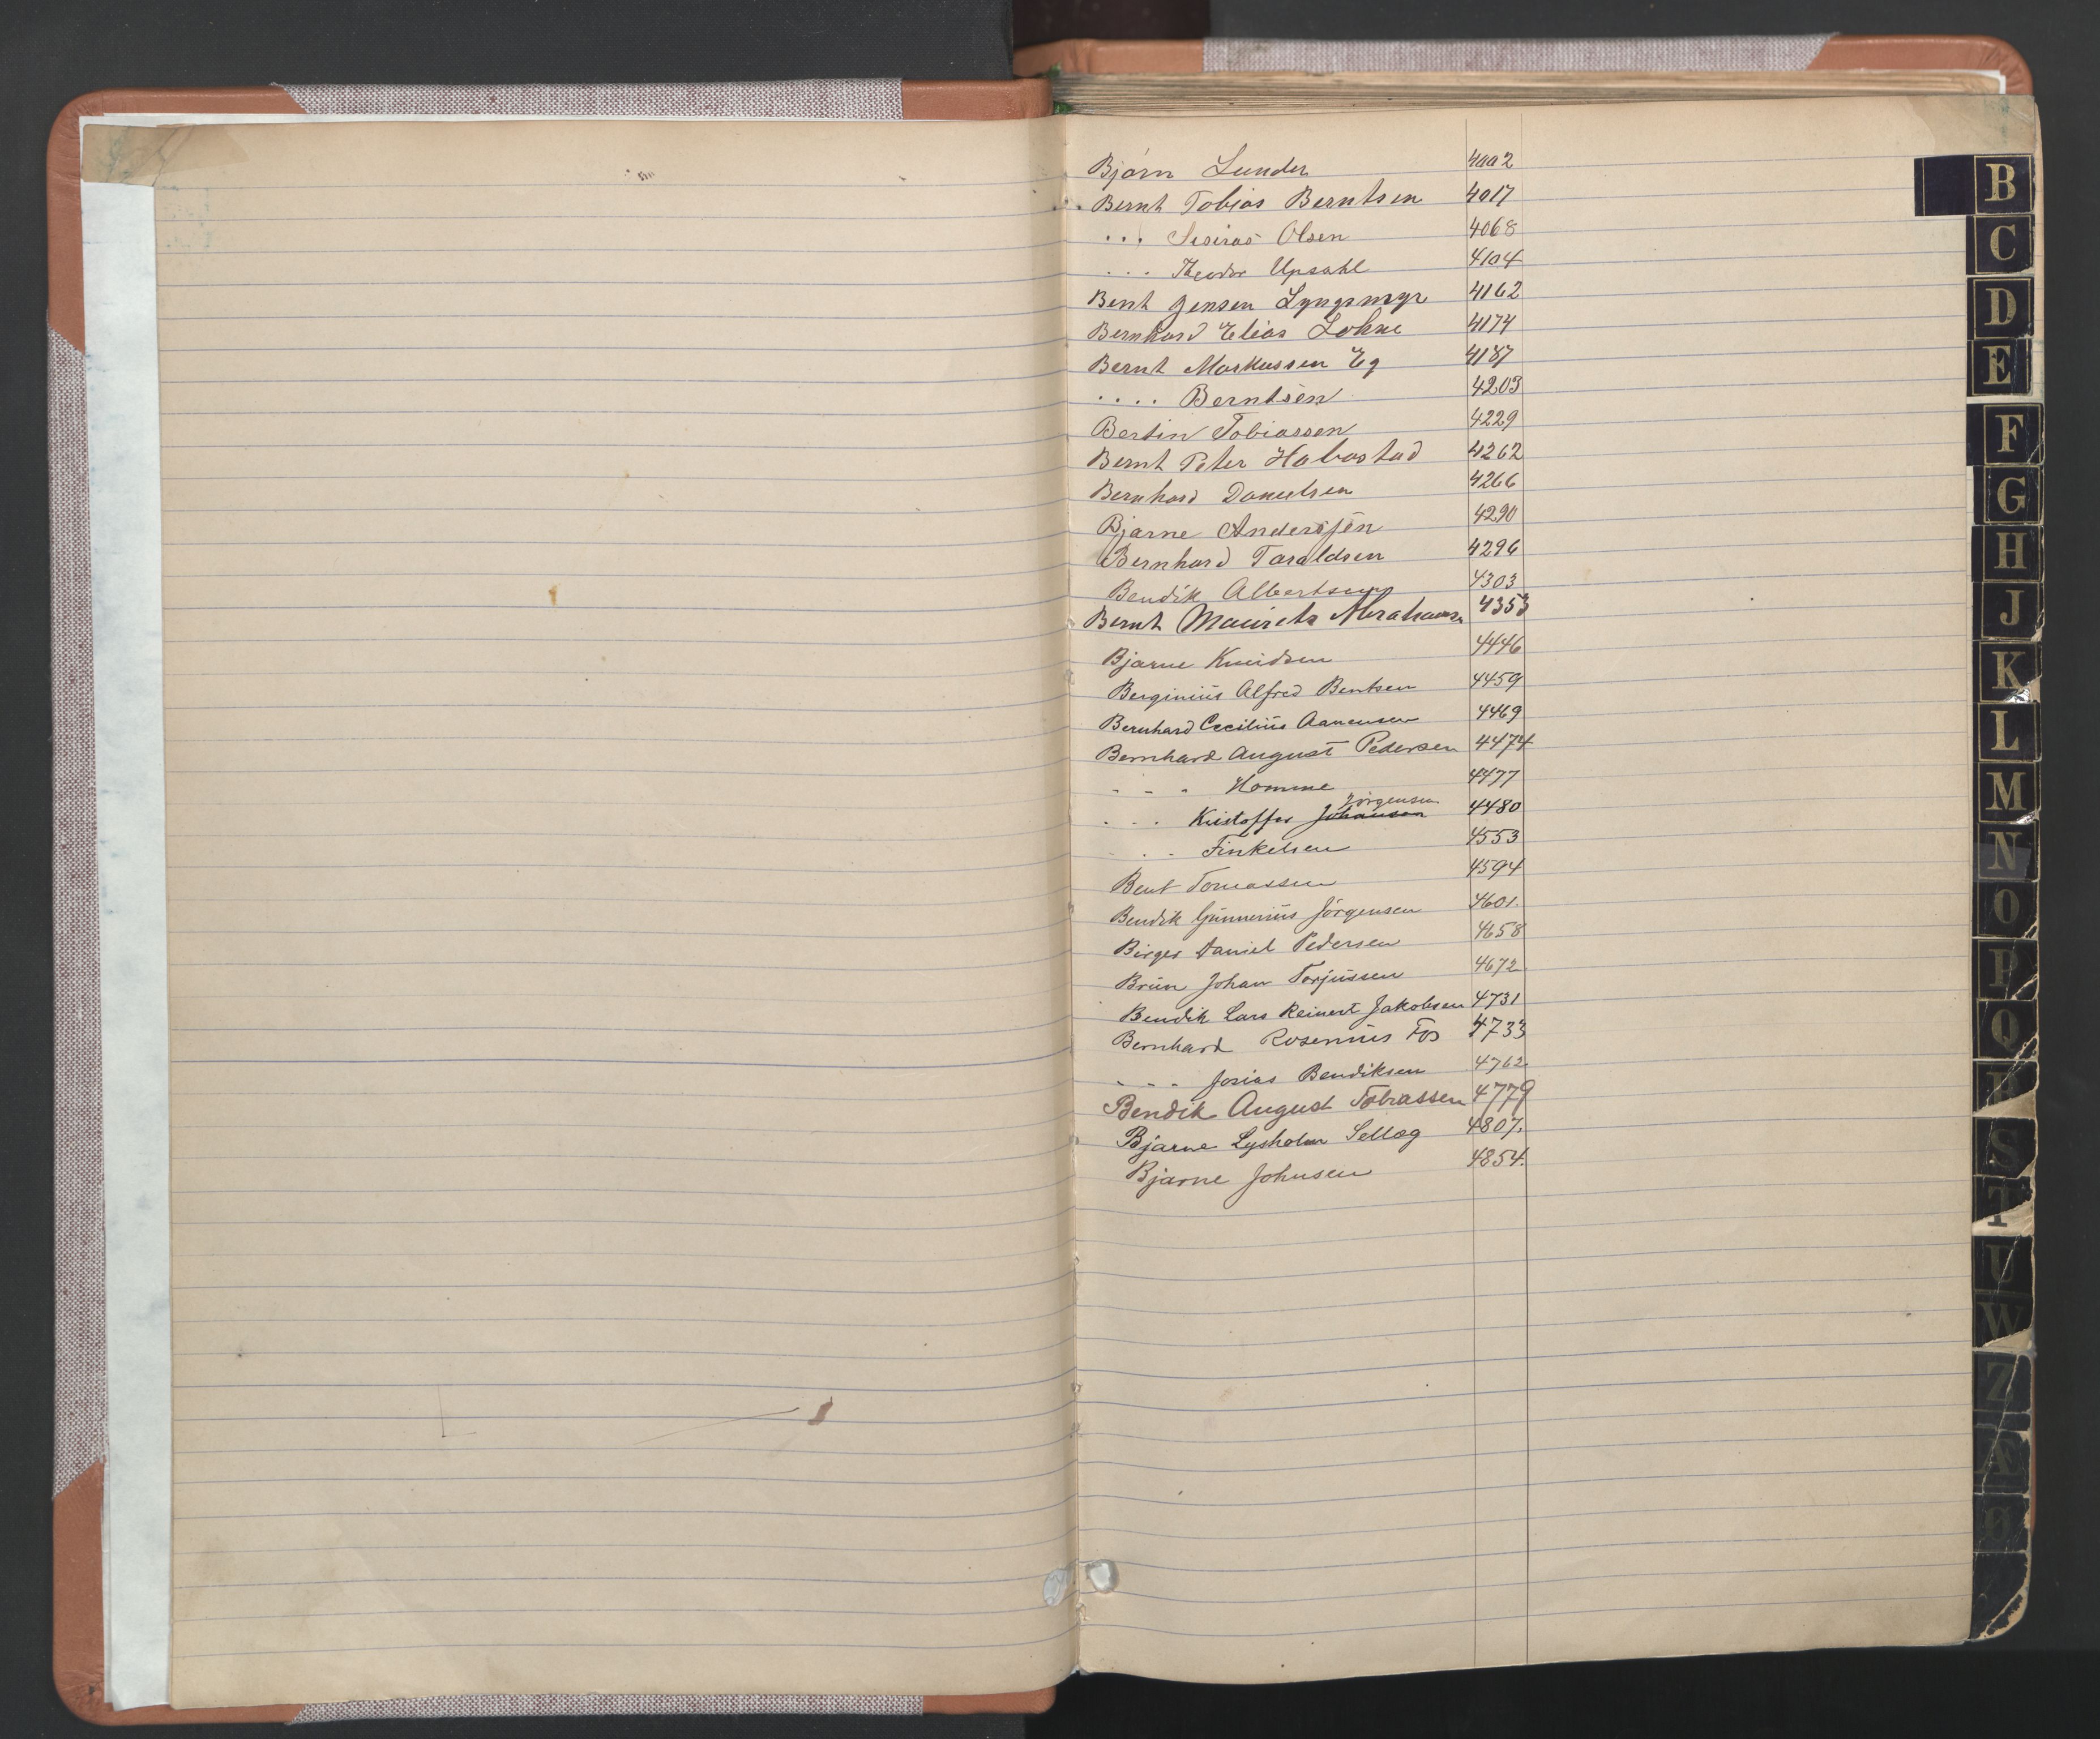 Bjørn Lunder 4002
Bernt Tobias Berntsen 4017
... Olsen 4068
... Theodor Upsahl 4104
Bent Jensen Lyngsmyr 4162
Bernhard Elias Lohne 4174
Bernt Markussen Eg 4187
.... Berntsen 4203
Bertin Tobiassen 4229
Bernt Peter 4262
Bernhard Danielsen 4266
Bjarne Anderssen 4290
Bernhard Taraldsen 4296
Bendik Albertsen 4303
Bernt Mauritz 4353
Bjarne Knudsen 4446
Berginius Alfred Bentsen 4459
Bernhard Cecilius Aanensen 4469
Bernhard August Pedersen 4474
- - - Homme 4477
Jörgensen
- - - Kristoffer Johansen 4480
- - - Finkelsen 4553
Bent Tomassen 4594
Bendik Gunnerius Jörgensen 4601.
Birger Daniel Pedersen 4658
Brun Johan Torjussen 4672
Bendik Lars Reinert Jakobsen 4731
Bernhard Rosenius Fos 4733
- - - Josias Bendiksen 4762
Bendik August Tobiassen 4779
Bjarne Lysholm Sellæg 4807.
Bjarne Johnsen 4854.
B
C
D
E
F
G
H
J
K
L
M
N
O
P
Q
R
S
T
U
W
Z
Æ
Ø